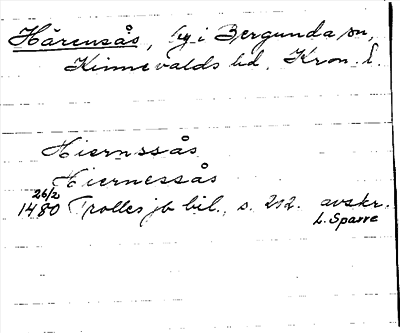 Härensås, by i Bergunda sn,
Kinnevalds hd, Kron. l.
Hiernssås
Hiernessås
26/2
1480 Trolles jb bil., s. 212. avskr.
L. Sparre